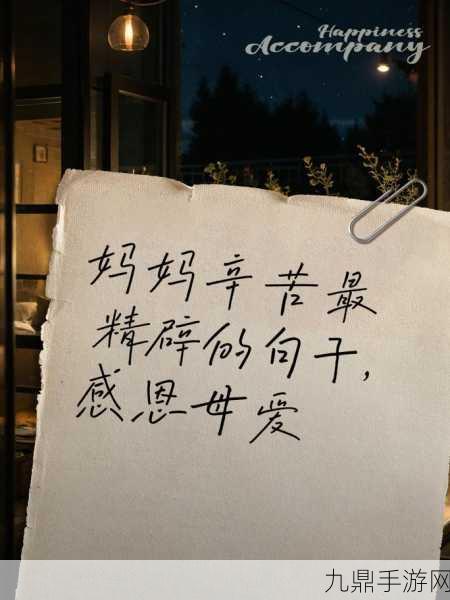 Happiness
Accompany
妈妈辛苦最
精辟的句子,
感恩母爱
九鼎手游网